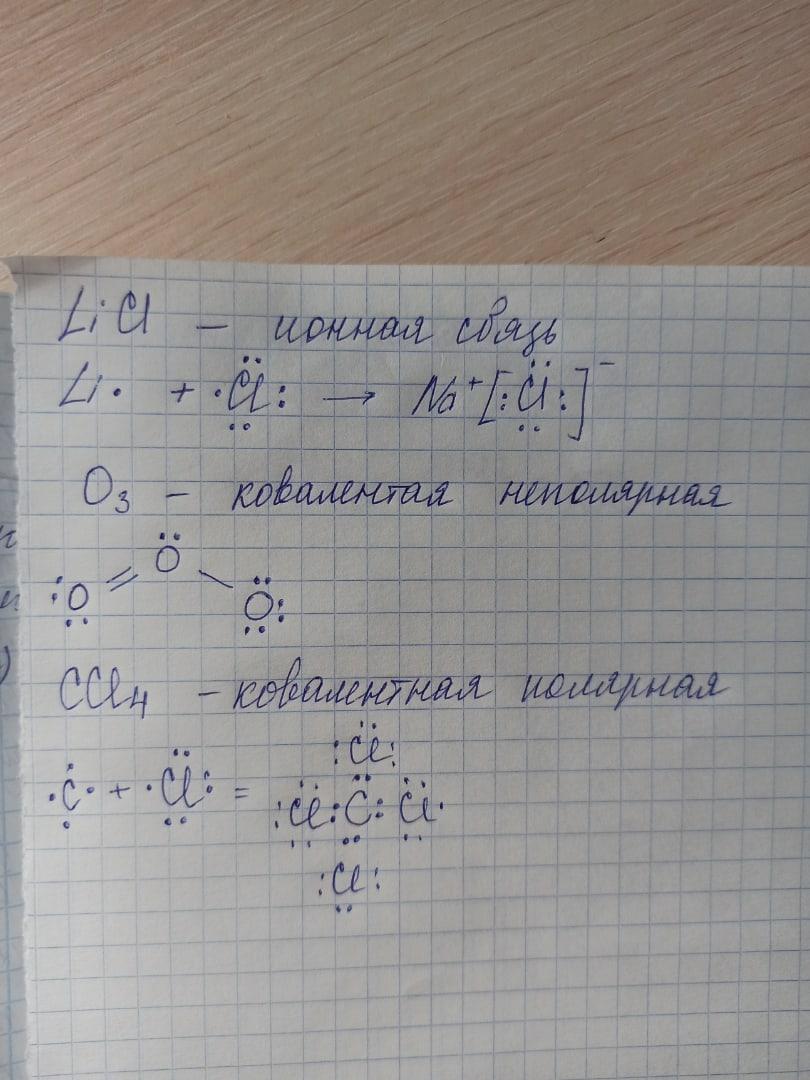 LiCl – ионная связь
Li· + ·C̤̈l: → Na⁺[:C̤̈l:]⁻
O₃ – ковалентая неполярная
:Ọ̤ = Ö – Ö̤:
CCl₄ – ковалентная полярная
·Ċ̣· + ·C̤̈l: = :C̈l:
:C̤̈l:C̤̈:C̤̈l·
:C̤l: